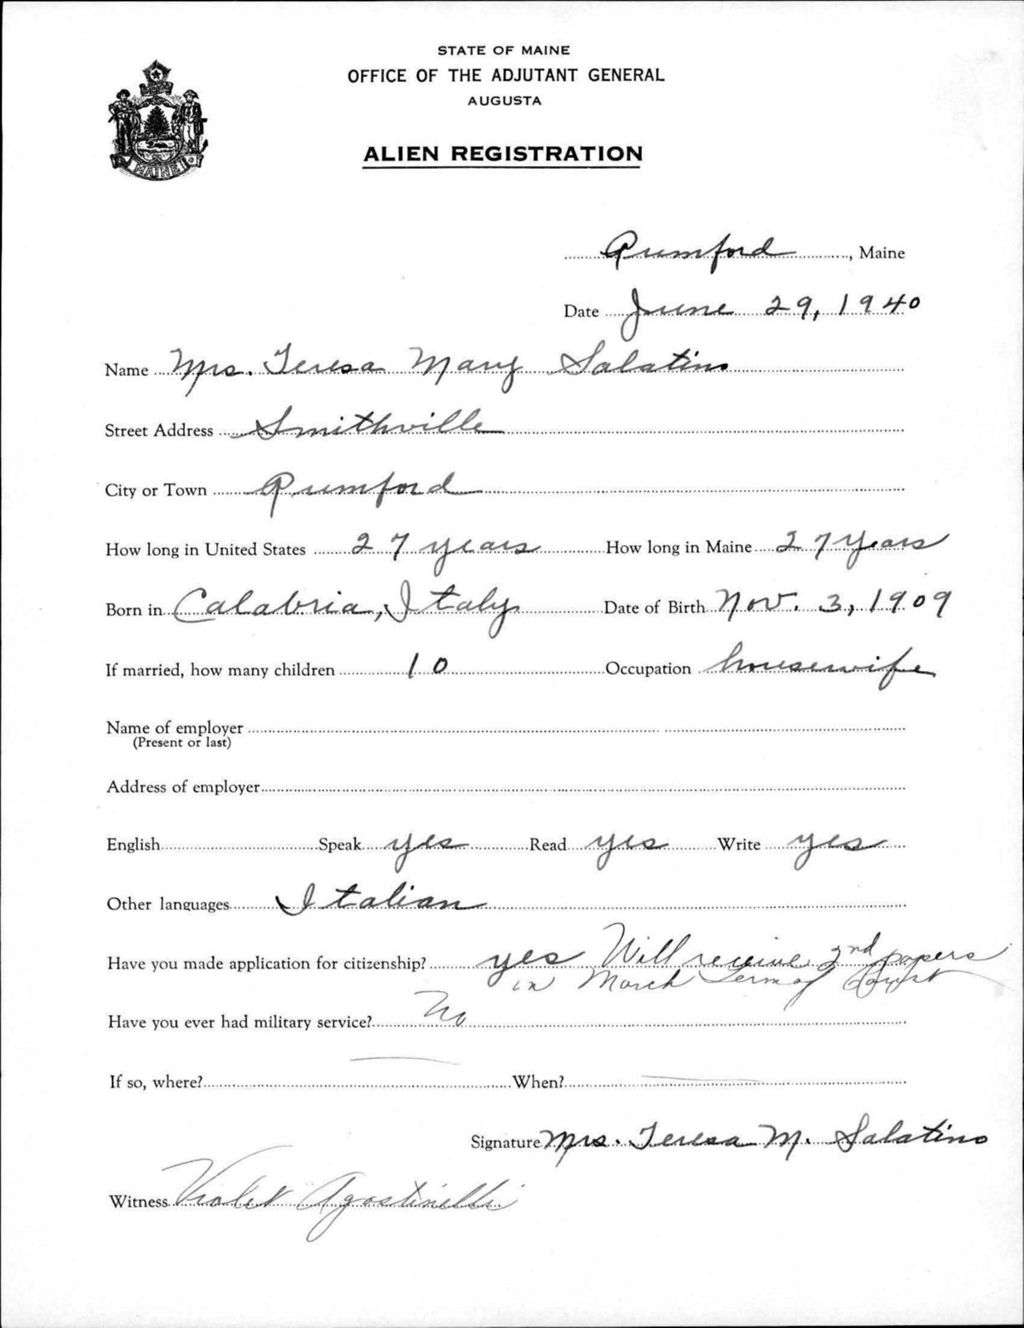 STATE OF MAINE
OFFICE OF THE ADJUTANT GENERAL
AUGUSTA
ALIEN REGISTRATION
MAINE
Rumford, Maine
Date June 29, 1940
Name Mrs. Teresa Mary Salatino
Street Address Smithville
City or Town Rumford
How long in United States 27 years How long in Maine 27 Years
Born in Calabria, Italy Date of Birth Nov. 3, 1909
If married, how many children 10 Occupation housewife
Name of employer
(Present or last)
Address of employer
English Speak yes Read yes Write yes
Other languages Italian
Have you made application for citizenship? yes Will receive 2nd papers
in March Term of Court
Have you ever had military service? No
If so, where? When?
Signature Mrs. Teresa M. Salatino
Witness Violet Agostinelli